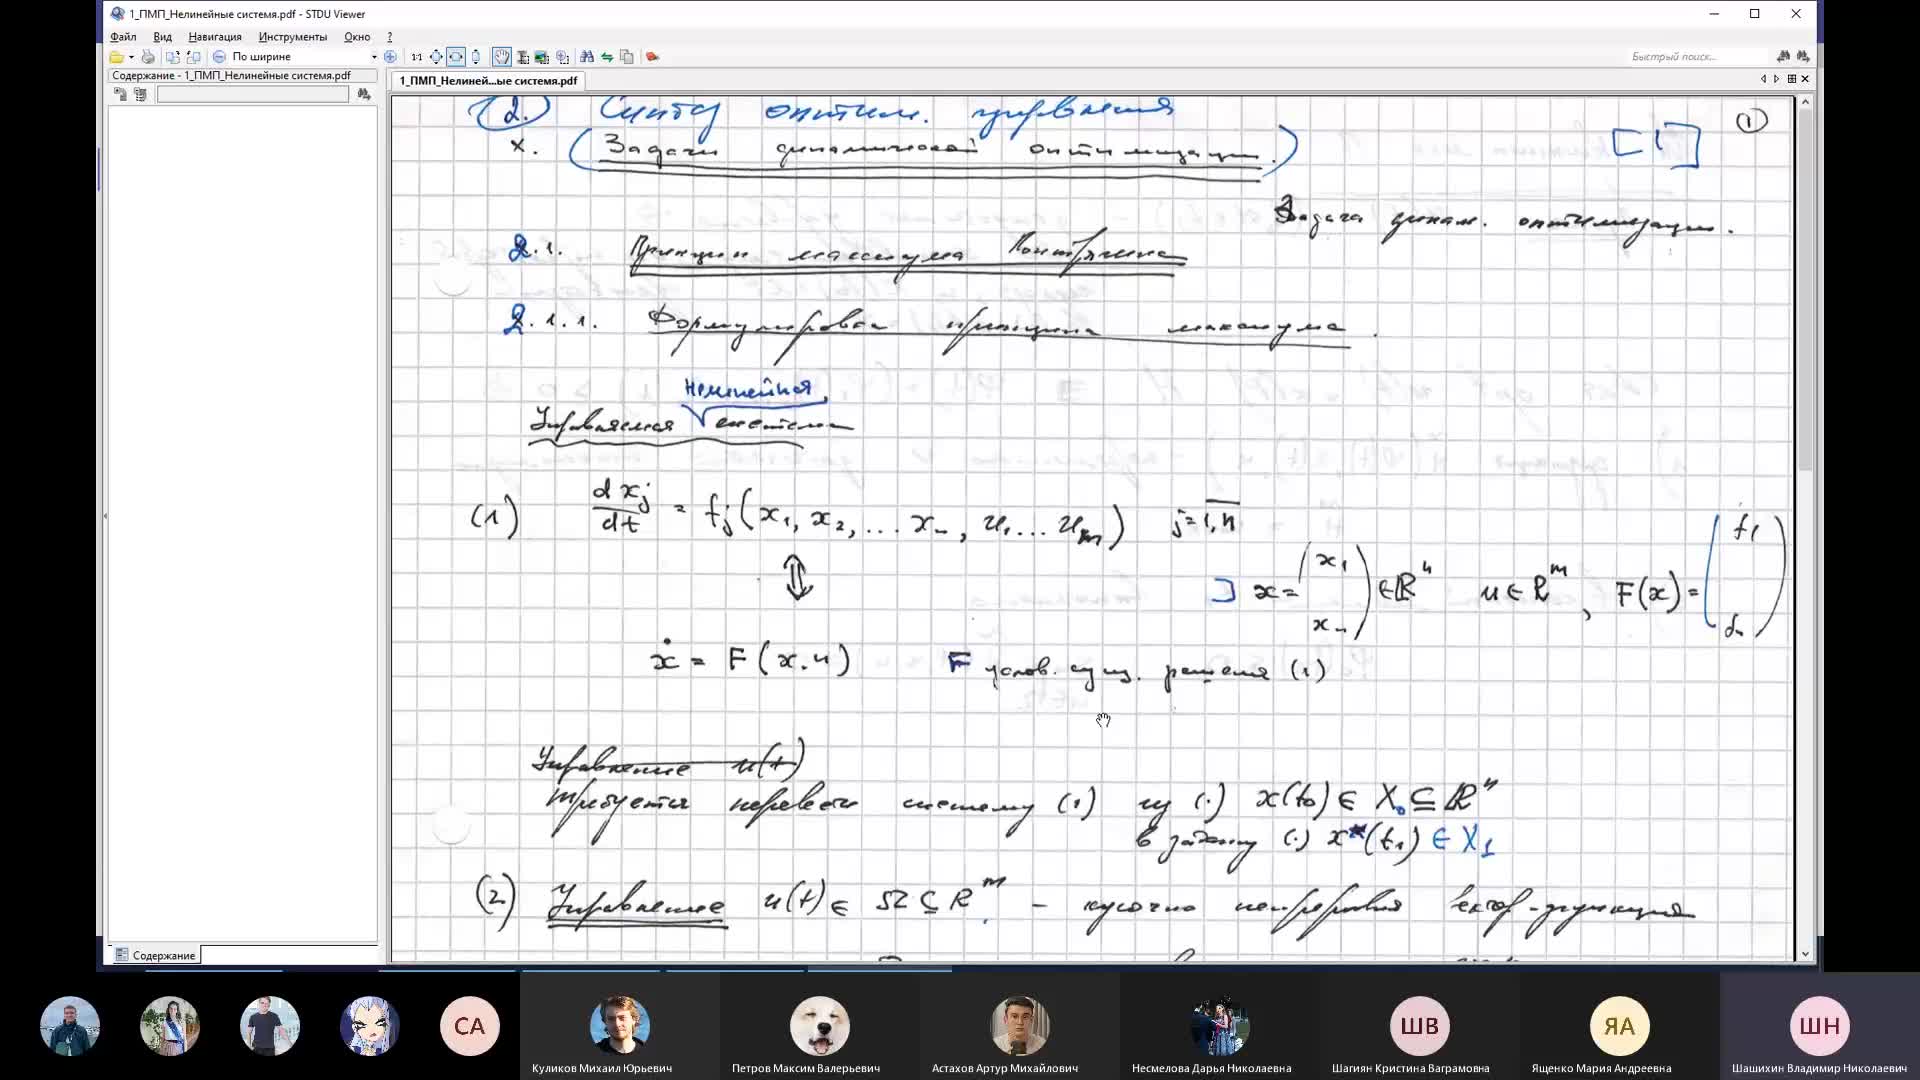 1_ПМП_Нелинейные системя.pdf - STDU Viewer
Файл Вид Навигация Инструменты Окно ?
По ширине
1:1
Быстрый поиск...
Содержание - 1_ПМП_Нелинейные системя.pdf
1_ПМП_Нелиней...ые системя.pdf
2. Синтез оптим. управления
①
x. (Задачи динамической оптимизации.)
Задача динам. оптимизации.
2.1. Принцип максимума Понтрягина
2.1.1. Формулировка принципа максимума.
нелинейная
Управляемая система
(1) dxj/dt = fj(x1, x2, ... xn, u1 ... um) j=1,n
x = (x1 xn) ∈ ℝⁿ u ∈ ℝᵐ, F(x) = (f1 fn)
ẋ = F(x, u) F услов. сущ. решения (1)
Управление u(t)
требуется перевести систему (1) из (·) x(t0) ∈ X0 ⊆ ℝⁿ
в заданную (·) x*(t1) ∈ X1
(2) Управление u(t) ∈ Ω ⊆ ℝᵐ - кусочно непрерывная вектор-функция
Содержание
СА
ШВ
ЯА
ШН
Куликов Михаил Юрьевич
Петров Максим Валерьевич
Астахов Артур Михайлович
Несмелова Дарья Николаевна
Шагиян Кристина Ваграмовна
Ященко Мария Андреевна
Шашихин Владимир Николаевич